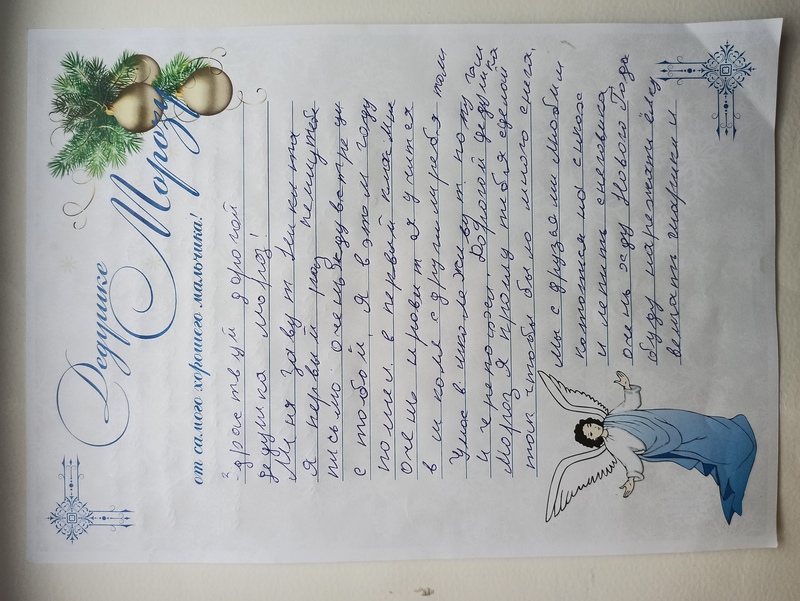 Дедушке
Морозу
от самого хорошего мальчика!
здраствуй дорогой
дедушка мороз!
Миня завут
я первый раз
письмо очень жду встречи
с тобой, я в этом году
пошел в первый класс
очень нравится я учится
в школе с другими ребятами
У нас в школе живут попугаи
и черепаха. Дорогой дедушка
Мороз я прошу тебя сделай
так чтобы было много снега,
мы с друзями любим
кататся на санках
и лепить снеговика
очень жду Нового Года
буду наряжать ёлку
вешать шарики и